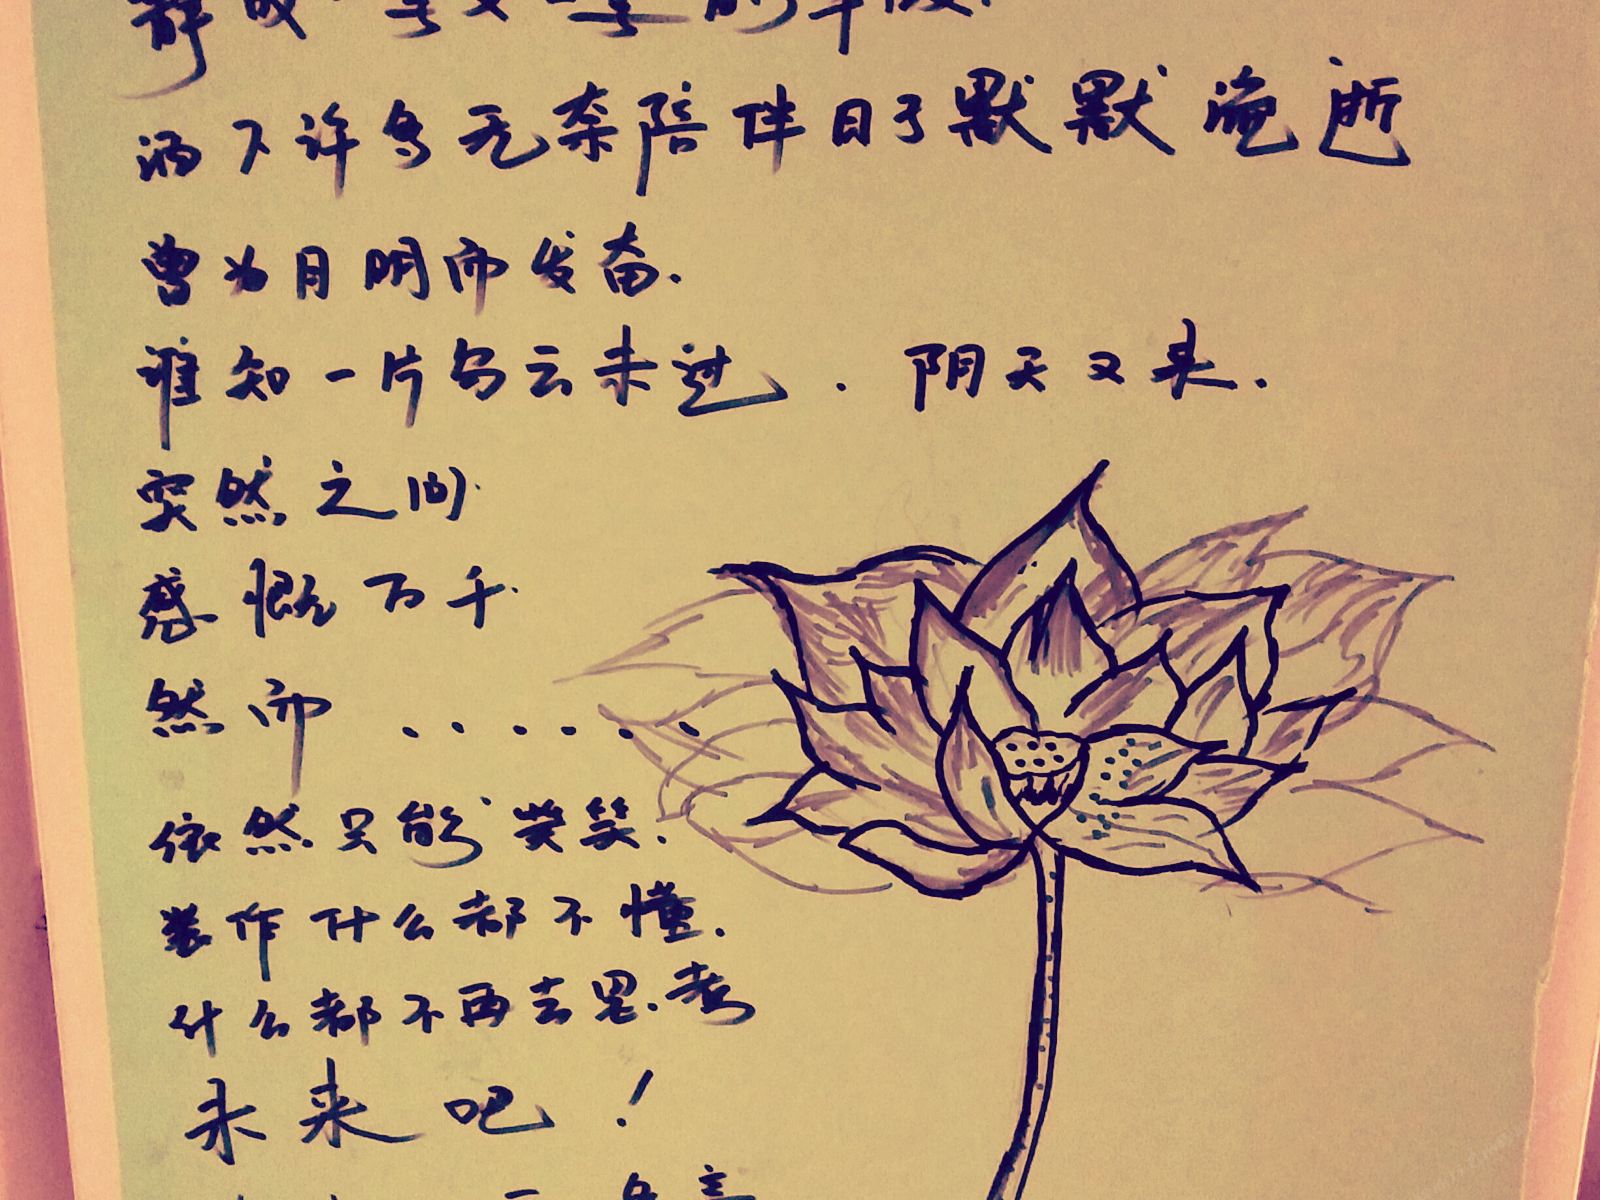 洒下许多无奈陪伴日子默默流逝
曾为月明而发奋.
谁知一片乌云未过.阴天又来.
突然之间.
感慨万千.
然而.......
依然只能笑笑.
装作什么都不懂.
什么都不再去思考
未来吧!